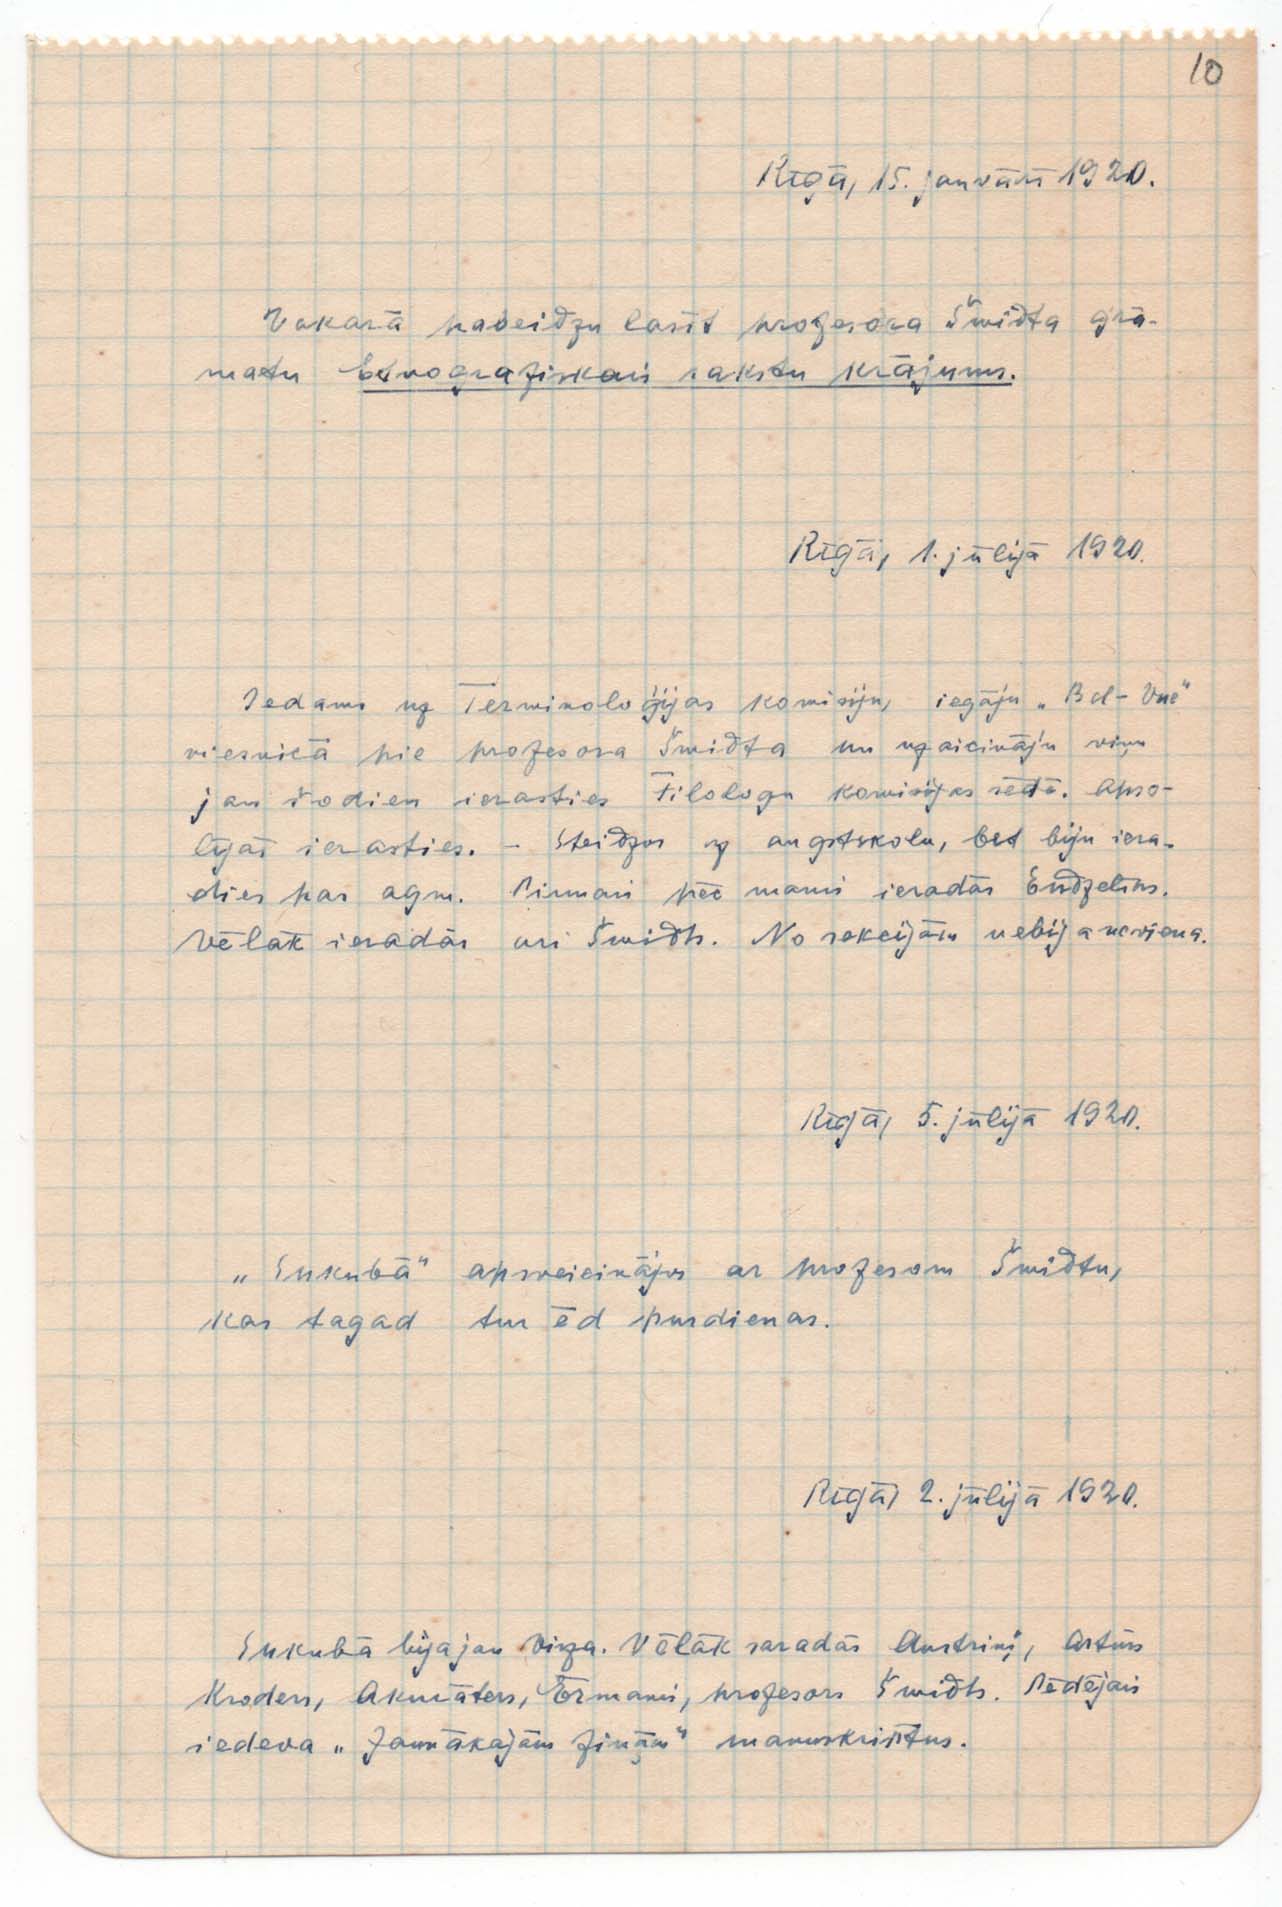 10
Rīgā, 15. janvārī 1920.
Vakarā pabeidzu lasīt profesora Šmidta grā-
matu Etnografiskais rakstu krājums.
Rīgā, 1. jūlijā 1920.
Iedams uz Terminoloģijas komisiju, iegāju „
viesnīcā pie profesora Šmidta un uzaicināju viņu
jau šodien ierasties Filologu komisijas sēdē. Apso-
lījās ierasties. – Steidzos uz augstskolu, bet biju iera-
dies par agru. Pirmais pēc manis ieradās Endzelīns.
Vēlāk ieradās arī Šmidts. No sekcijām nebija neviena.
Rīgā, 5. jūlijā 1920.
„Sukubā" apsveicinājos ar profesoru Šmidtu,
kas tagad tur ēd pusdienas.
Rīgā, 2. jūlijā 1920.
Sukubā bija jau Virza. Vēlāk saradās Austriņš, Artūrs
Kroders, Akurāters, Ērmanis, profesors Šmidts. Pēdējais
iedeva „Jaunākajām Ziņām" manuskriptus.